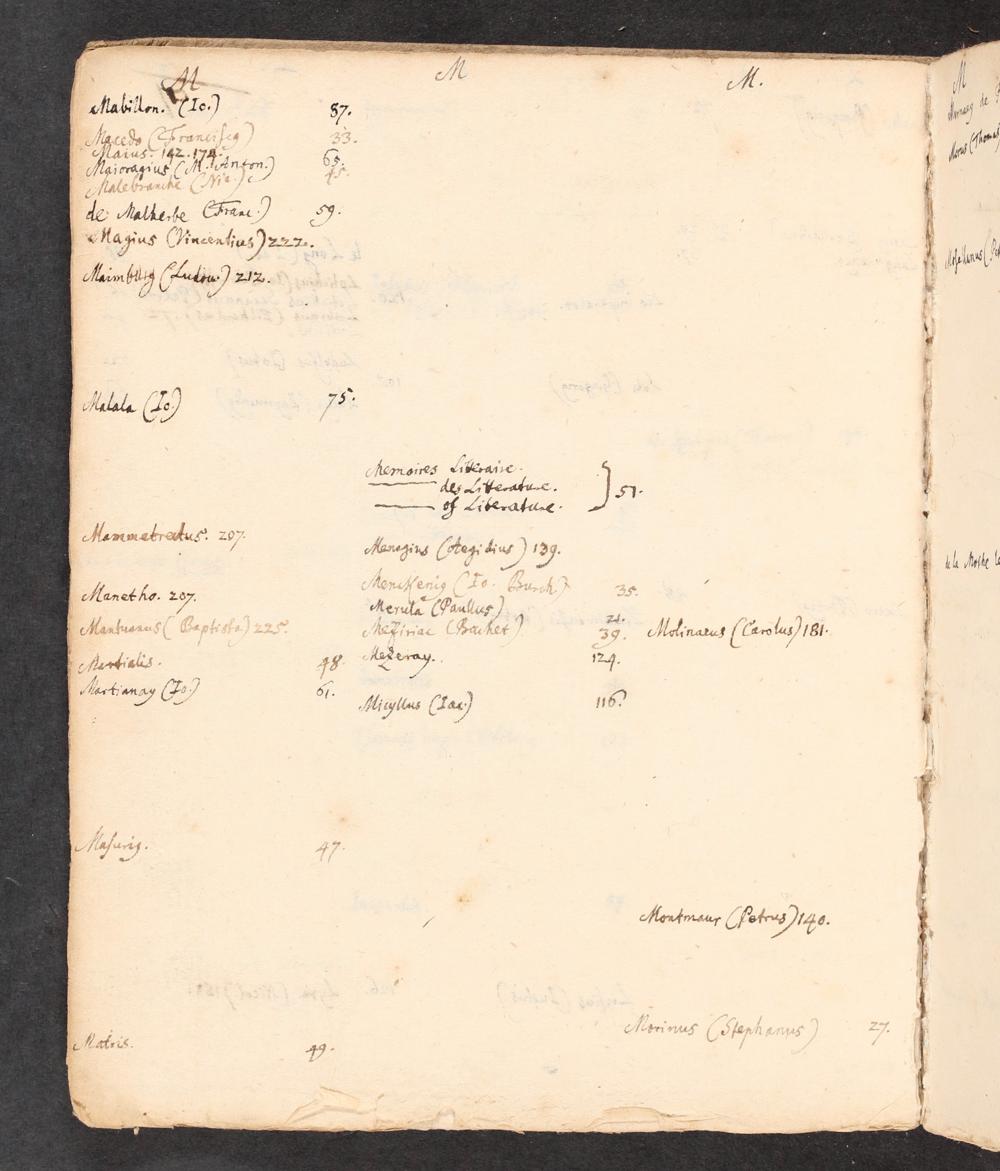 M
Mabillon. (Io.) 87.
Macedo (Francisc9) 33.
Maius. 142. 174.
Maioragius (M. Anton.) 65.
Malebranche (Nic.) 45.
de Malherbe (Franc.) 59.
Magius (Vincentius) 222.
Maimburg (Ludou.) 212.
Malala (Io.) 75.
Mammetrectus. 207.
Manetho. 207.
Mantuanus (Baptista) 225.
Martialis. 48.
Martianay (Io.) 61.
Masurig. 47.
Matris. 49.
M
Memoires Literaire.
—— des Litterature.
—— of Literature. } 51.
Menagius (Aegidius) 139.
Menckenig (Io. Burch.) 35.
Merula (Paullus) 21.
Meziriac (Bachet) 39.
Mezeray. 124.
Micyllus (Iac.) 116.
M.
Molinaeus (Carolus) 181.
Montmaur (Petrus) 140.
Morinus (Stephanus) 27.
M
Morus (Thomas
de la Mothe le